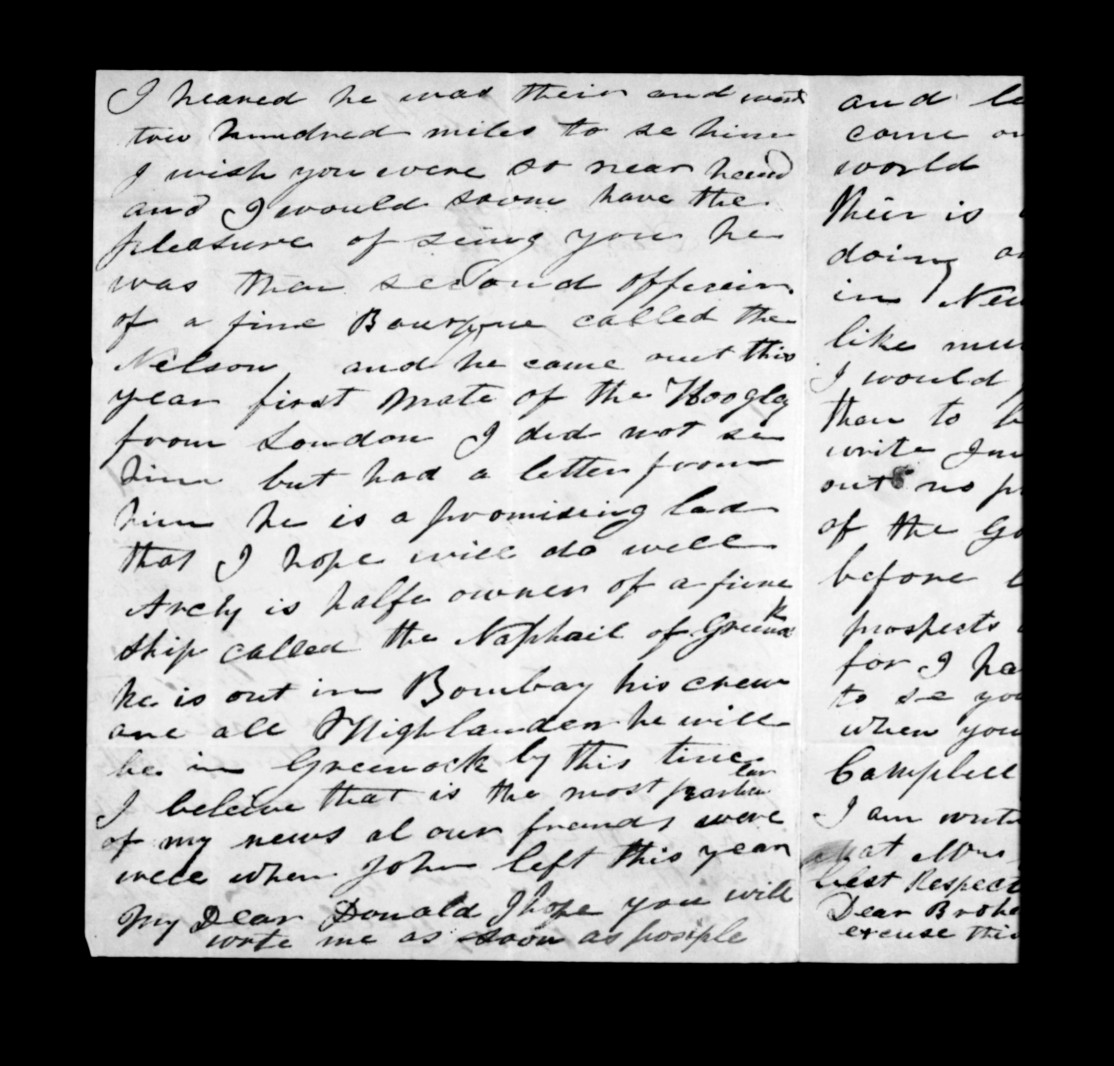 I heared he was their and went
two hundred miles to se him
I wish you were so near hand
and I would soom have the
pleasure of seing you he
was then second officeir
of a fine called the
Nelson and he came out this
year first mate of the Hoogley
from London I did not se
him but had a letter from
him he is a promising lad
that I hope will do well
Archy is halfe owner of a fine
ship called the Naphail of Greenok
he is out in Bombay his crew
are all Highlander he will
be in Greenock by this time
I beleive that is the most
of my news al our friends were
well when John left this year
My Dear Donald I hope you will
write me as soon as posiple
and
come
world
their is
doing
in New
like
I would
then to
write
out no
of the
before
prospects
for I ha
to se you
when you
Campbell
I am write
that Mrs
best Respect
Dear Brothe
excuse this